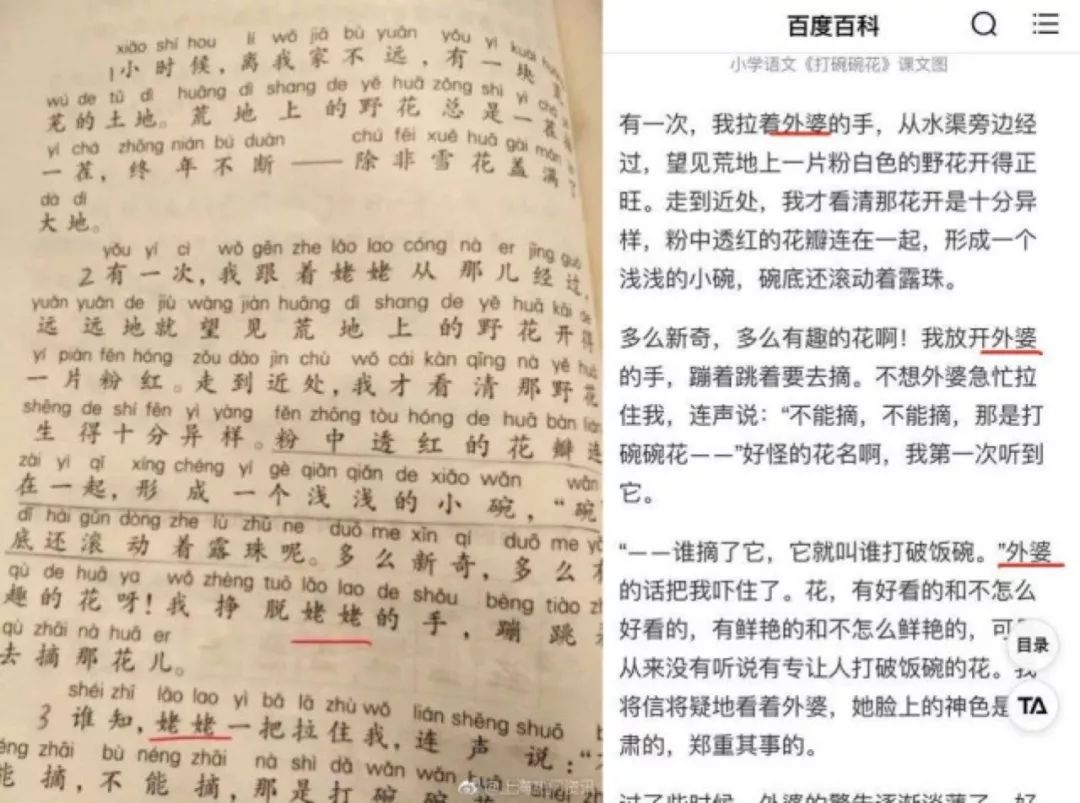 xiǎo shí hou lí wǒ jiā bù yuǎn yǒu yí kuài
1小时候，离我家不远，有一块
wú de tǔ dì huāng dì shang de yě huā zǒng shì yì chá
芜的土地。荒地上的野花总是一茬
yì chá zhōng nián bú duàn chú fēi xuě huā gài mǎn
一茬，终年不断——除非雪花盖满了
dà dì
大地。
yǒu yí cì wǒ gēn zhe lǎo lao cóng nà er jīng guò
2有一次，我跟着姥姥从那儿经过，
yuǎn yuǎn de jiù wàng jiàn huāng dì shang de yě huā kāi de
远远地就望见荒地上的野花开得
yí piàn fěn hóng zǒu dào jìn chù wǒ cái kàn qīng nà yě huā
一片粉红。走到近处，我才看清那野花
shēng de shí fēn yì yàng fěn zhōng tòu hóng de huā bàn lián
生得十分异样。粉中透红的花瓣连
zài yì qǐ xíng chéng yí gè qiǎn qiǎn de xiǎo wǎn wǎn
在一起，形成一个浅浅的小碗，“碗”
dǐ hái gǔn dòng zhe lù zhū ne duō me xīn qí duō me yǒ
底还滚动着露珠呢。多么新奇，多么有
qù de huā ya wǒ zhèng tuō lǎo lao de shǒu bèng tiào zh
趣的花呀！我挣脱姥姥的手，蹦跳着
qù zhāi nà huā er
去摘那花儿。
shéi zhī lǎo lao yì bǎ lā zhù wǒ lián shēng shuō
3谁知，姥姥一把拉住我，连声说：“不
néng zhāi bù néng zhāi nà shì dǎ wǎn wǎn huā
能摘，不能摘，那是打碗碗花
@上海新闻资讯
百度百科
小学语文《打碗碗花》课文图
有一次，我拉着外婆的手，从水渠旁边经
过，望见荒地上一片粉白色的野花开得正
旺。走到近处，我才看清那花开是十分异
样，粉中透红的花瓣连在一起，形成一个
浅浅的小碗，碗底还滚动着露珠。
多么新奇，多么有趣的花啊！我放开外婆
的手，蹦着跳着要去摘。不想外婆急忙拉
住我，连声说：“不能摘，不能摘，那是打
碗碗花——”好怪的花名啊，我第一次听到
它。
“——谁摘了它，它就叫谁打破饭碗。”外婆
的话把我吓住了。花，有好看的和不怎么
好看的，有鲜艳的和不怎么鲜艳的，可
从来没有听说有专让人打破饭碗的花。我
将信将疑地看着外婆，她脸上的神色是
肃的，郑重其事的。
过了些时候，外婆的警告逐渐淡薄了，好
目录
TA